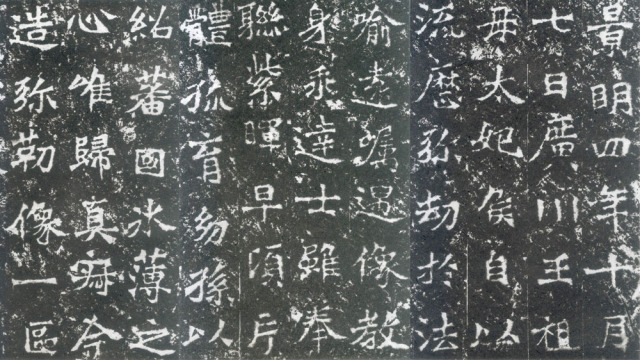 景明四年十月
七日廣川王祖
母太妃侯自以
流歷弥劫於法
喻遠囑遇像教
身乖達士雖奉
聯紫暉早頃片
體孤育幼孫以
紹蕃國氷薄之
心唯歸真寂今
造弥勒像一區